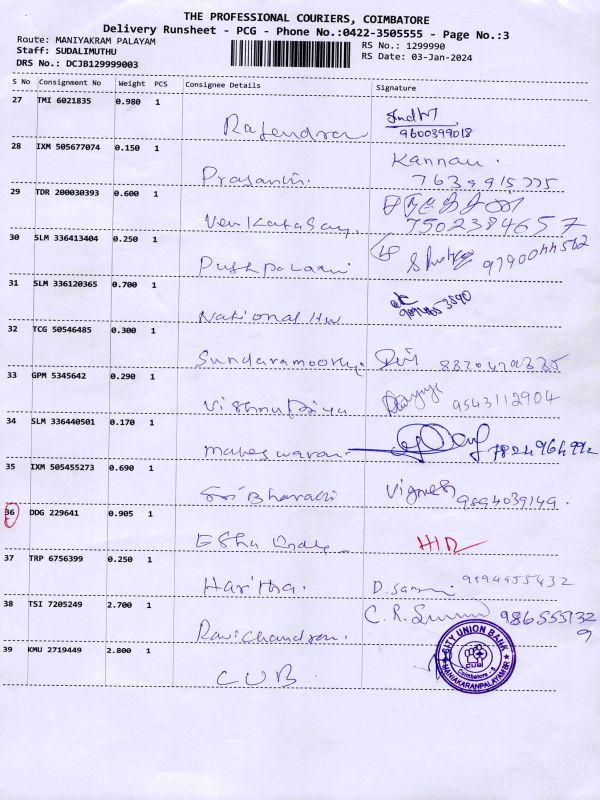 THE PROFESSIONAL COURIERS, COIMBATORE
Delivery Runsheet - PCG - Phone No.:0422-3505555 - Page No.:3
Route: MANIYAKRAM PALAYAM
Staff: SUDALIMUTHU
DRS No.: DCJB129999003
RS No.: 1299990
RS Date: 03-Jan-2024
S No Consignment No Weight PCS Consignee Details Signature
27 TMI 6021835 0.980 1
Rajendran 9600399018
28 IXM 505677074 0.150 1 Kannan.
Prasanth. 7639915775
29 TDR 200030393 0.600 1
Venkatasay. 7502384657
30 SLM 336413404 0.250 1
Pushpalaxmi 9790044562
31 SLM 336120365 0.700 1
National Hw
32 TCG 50546485 0.300 1
Sundaramoorthy.
33 GPM 5345642 0.290 1
Vishnu Priya 9543112904
34 SLM 336440501 0.170 1
Maheswaran.
35 IXM 505455273 0.690 1
Sri Bharathi Vignesh 9894039149.
36 DDG 229641 0.905 1
Esha
37 TRP 6756399 0.250 1
Haritha. D.
38 TSI 7205249 2.700 1 C. R.
Ravichandran.
39 KMU 2719449 2.800 1
CUB.
CITY UNION BANK
CUB
Coimbatore
MANIAKARANPALAYAM BR